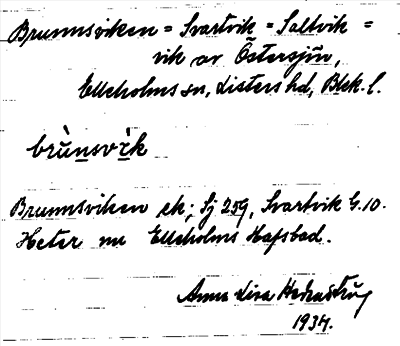 Brunnsviken = Svartvik = Saltvik =
vik av Östersjön,
Elleholms sn, Listers hd, Blek. l.
brùnsvìk
Brunnsviken ek; Sj 259, Svartvik G.10.
Heter nu Elleholms Hafsbad.
Anna Lisa
1934.